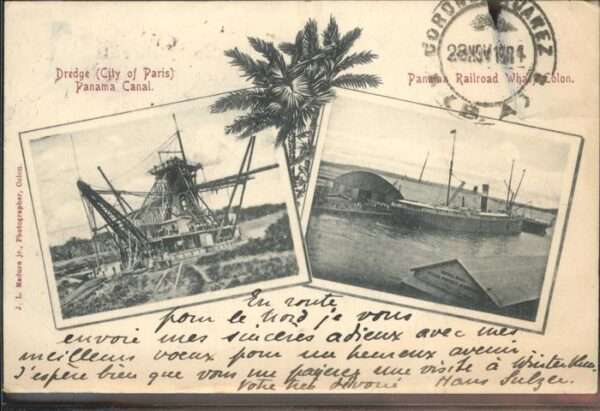 Dredge (City of Paris)
Panama Canal.
Panama Railroad Wharf, Colon.
28 NOV 1904
J. L. Maduro jr., Photographer, Colon.
En route
pour le Nord je vous
envoie mes sincères adieux avec mes
meilleurs voeux pour un heureux avenir.
J'espère bien que vous me payerez une visite à
Votre très dévoué Hans Sulzer.